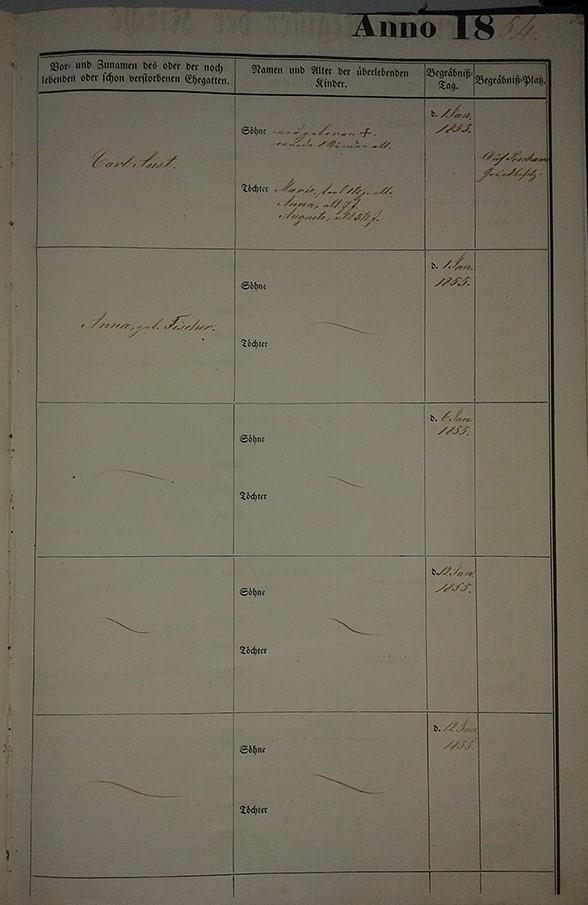 Anno 1854.
Vor- und Zunamen des oder der noch
lebenden oder schon verstorbenen Ehegatten.
Namen und Alter der überlebenden
Kinder.
Begräbniß-
Tag.
Begräbniß-Platz.
Carl Aust.
Söhne
alt.
Töchter Marie, alt.
Anna, alt 7 J.
Auguste, alt J.
d. 1 Jan.
1855.
Auf
Anna, geb. Fischer.
Söhne
Töchter
d. 1 Jan.
1855.
Söhne
Töchter
d. 6 Jan.
1855.
Söhne
Töchter
d. 12 Jan.
1855.
Söhne
Töchter
d. 12 Jan
1855.